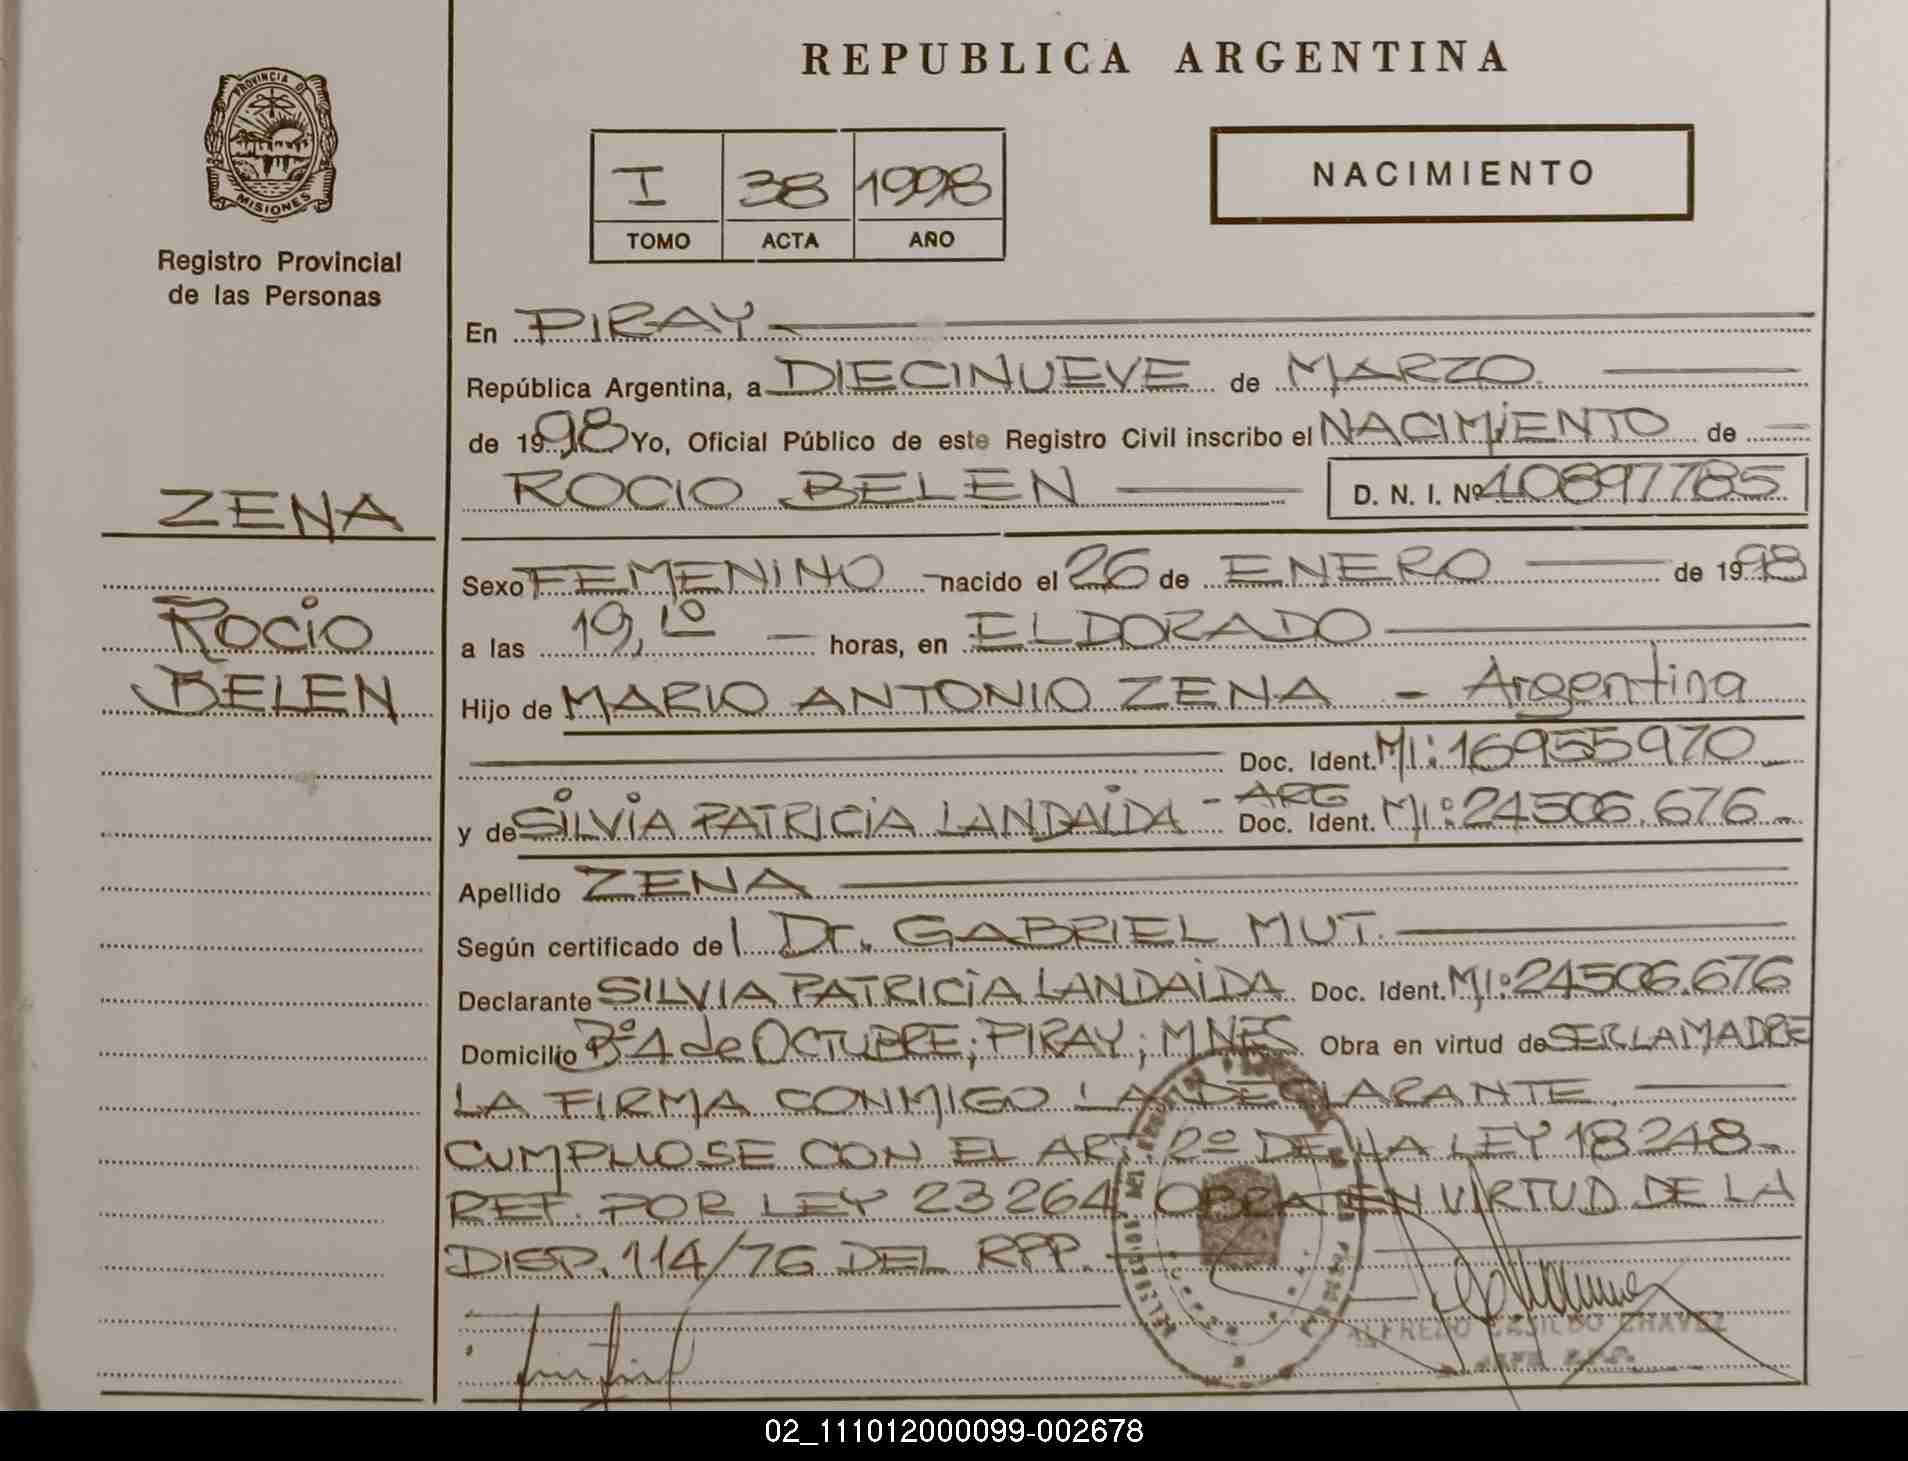 REPUBLICA ARGENTINA
PROVINCIA DE
MISIONES
Registro Provincial
de las Personas
I 38 1998
TOMO ACTA AÑO
NACIMIENTO
ZENA
ROCIO
BELEN
En PIRAY
República Argentina, a DIECINUEVE de MARZO
de 1998 Yo, Oficial Público de este Registro Civil inscribo el NACIMIENTO de
ROCIO BELEN D. N. I. Nº 40897785
Sexo FEMENINO nacido el 26 de ENERO de 1998
a las 19,10 horas, en ELDORADO
Hijo de MARIO ANTONIO ZENA - Argentina
Doc. Ident. MI: 16955970
y de SILVIA PATRICIA LANDAIDA - ARG Doc. Ident. MI: 24506.676
Apellido ZENA
Según certificado de Dr. GABRIEL MUT.
Declarante SILVIA PATRICIA LANDAIDA Doc. Ident. MI: 24506.676
Domicilio Bº 4 de OCTUBRE; PIRAY; MNES Obra en virtud de SER LA MADRE
LA FIRMA CONMIGO LA DECLARANTE
CUMPLIOSE CON EL ART. 2º DE LA LEY 18248-
REF. POR LEY 23264 OBRA EN VIRTUD DE LA
DISP. 114/76 DEL RPP.
ALFREDO CASILDO CHAVEZ
02_111012000099-002678